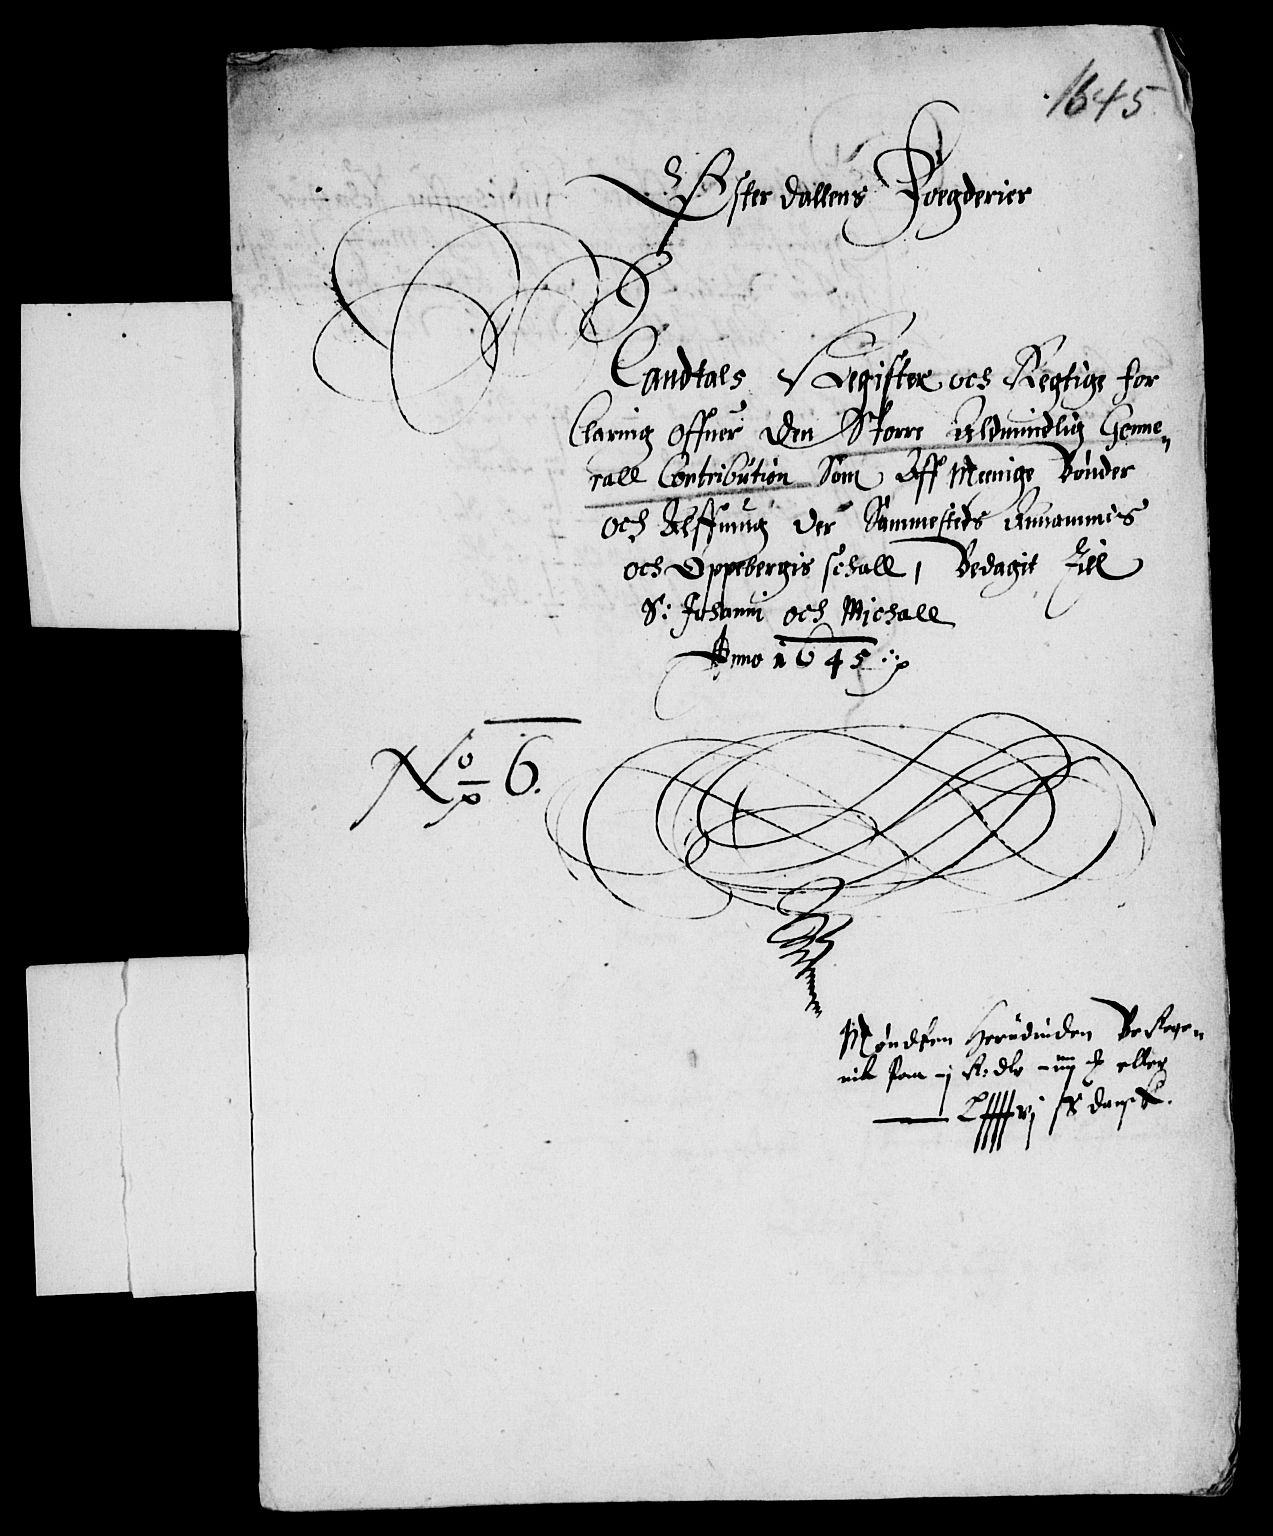 1645
Østerdallens Foegderier
Landtals Register och Regtige for
Claring offuer den Storre Aldmindlig Genne-
rall Contribution Som Aff Meenige Bønder
och Ref­fning der Sammesteds Annammis
och Oppebergis schall, Bedagit Till
S: Johanni och Michall
Anno 1645
No 6.
Møndten Herudinden Beregn-
som j R: dlr eller
s dansk.